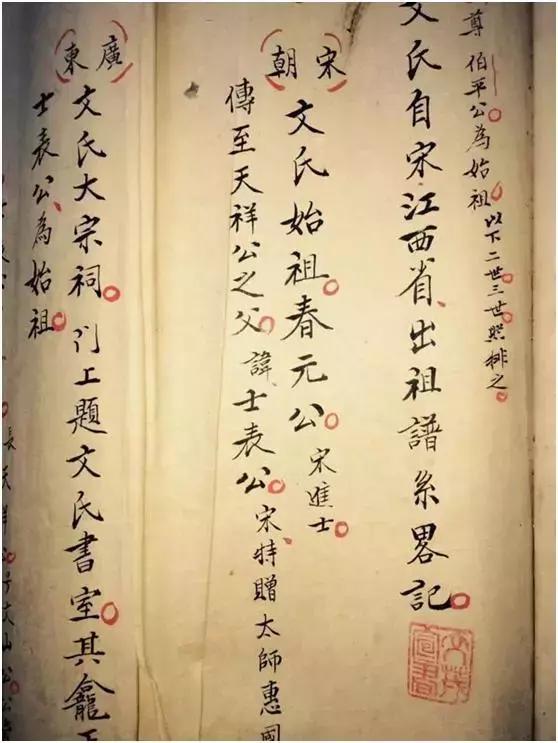 尊伯平公為始祖以下二世三世照排之
文氏自宋江西省出祖譜系畧記
(宋朝)
文氏始祖春元公宋進士
傳至天祥公之父諱士表公宋特贈太師惠國
(廣東)
文氏大宗祠門上題文氏書室其龕
士表公為始祖